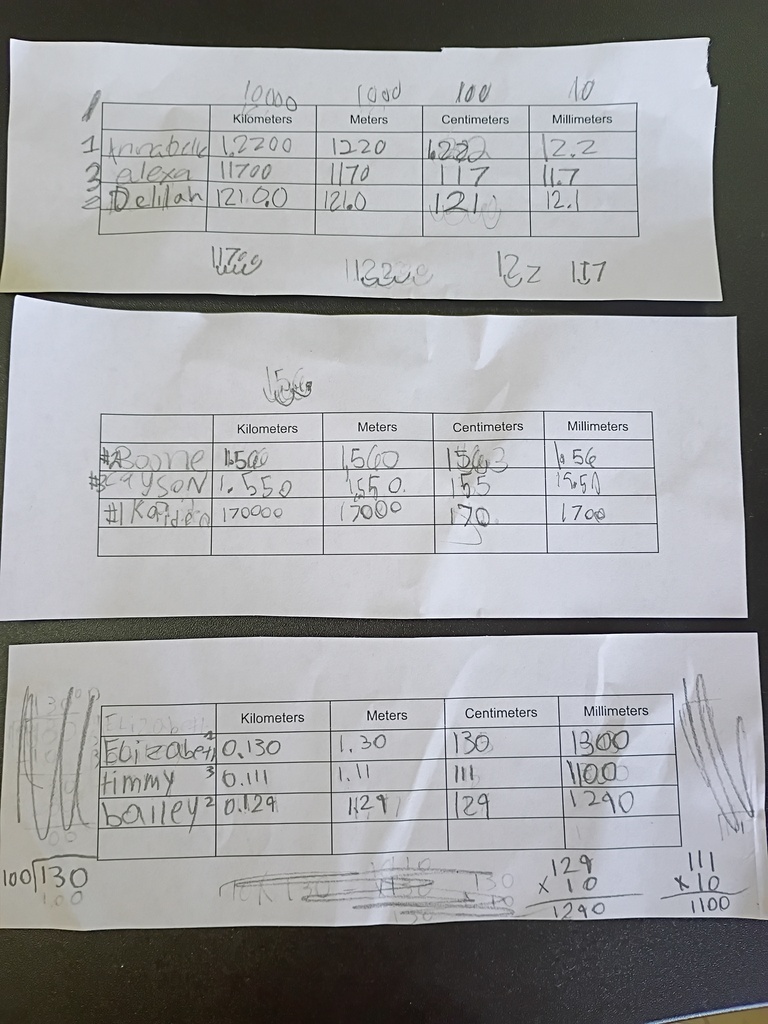 10000 1000 100 10
Kilometers Meters Centimeters Millimeters
1 Annabelle 1.2200 1220 12.2
3 alexa 11700 1170 117 11.7
2 Delilah 121.0.0 121.0 121 12.1
11700 12.2 117
156
Kilometers Meters Centimeters Millimeters
#2 Boone 1.560 1560 156 1.56
#3 caysoN 1.550 1550. 155 15.50
#1 170000 17000 170 1700
Elizabeth
Kilometers Meters Centimeters Millimeters
Elizabeth 1 0.130 1.30 130 1300
timmy 3 0.111 1.11 111 1100
bailey 2 0.129 1.29 129 1290
100 130
100
129
x 10
1290
111
x 10
1100